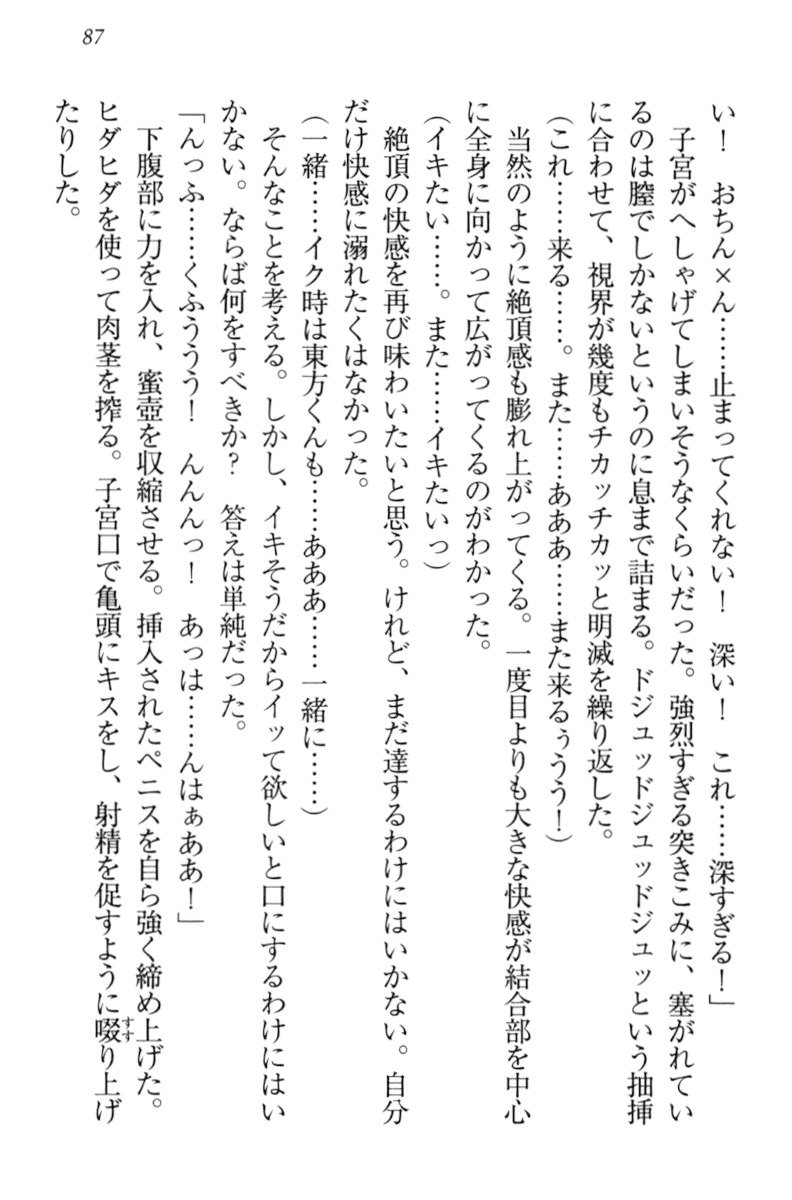 87
い！　おちん×ん……止まってくれない！　深い！　これ……深すぎる！」
　子宮がへしゃげてしまいそうなくらいだった。強烈すぎる突きこみに、塞がれてい
るのは膣でしかないというのに息まで詰まる。ドジュッドジュッドジュッという抽挿
に合わせて、視界が幾度もチカッチカッと明滅を繰り返した。
（これ……来る……。また……あああ……また来るぅうう！）
　当然のように絶頂感も膨れ上がってくる。一度目よりも大きな快感が結合部を中心
に全身に向かって広がってくるのがわかった。
（イキたい……。また……イキたいっ）
　絶頂の快感を再び味わいたいと思う。けれど、まだ達するわけにはいかない。自分
だけ快感に溺れたくはなかった。
（一緒……イク時は東方くんも……あああ……一緒に……）
　そんなことを考える。しかし、イキそうだからイッて欲しいと口にするわけにはい
かない。ならば何をすべきか？　答えは単純だった。
「んっふ……くふううう！　んんんっ！　あっは……んはぁああ！」
　下腹部に力を入れ、蜜壺を収縮させる。挿入されたペニスを自ら強く締め上げた。
ヒダヒダを使って肉茎を搾る。子宮口で亀頭にキスをし、射精を促すように啜り上げ
すす
たりした。